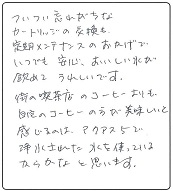 ついつい忘れがちな
カートリッジの交換も
定期メンテナンスのおかげで
いつでも安心、おいしい水が
飲めて うれしいです。
街の喫茶店のコーヒーよりも
自宅のコーヒーの方が美味しいと
感じるのは、アクアスで
浄水された水を使っている
からかなと思います。